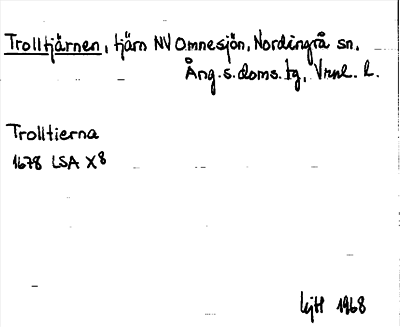 Trolltjärnen, tjärn NV Omnesjön, Nordingrå sn.
Ång. s. doms. tg, Vrnl. l.
Trolltierna
1678 LSA X8
1968